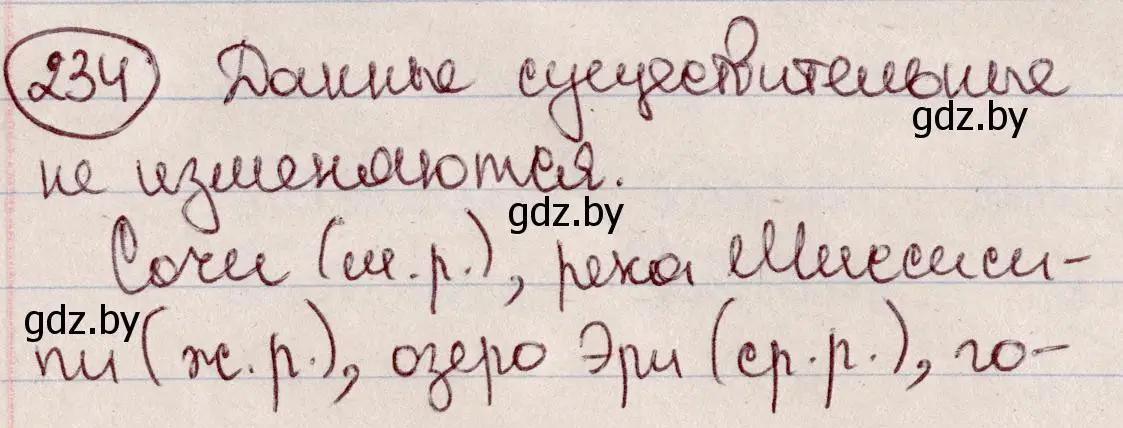 234 Данные существительные
gdz.by
не изменяются.
gdz.by
Сочи (м.р.), река Миссиси-
gdz.by
пи (ж.р.), озеро Эри (ср.р.), го-